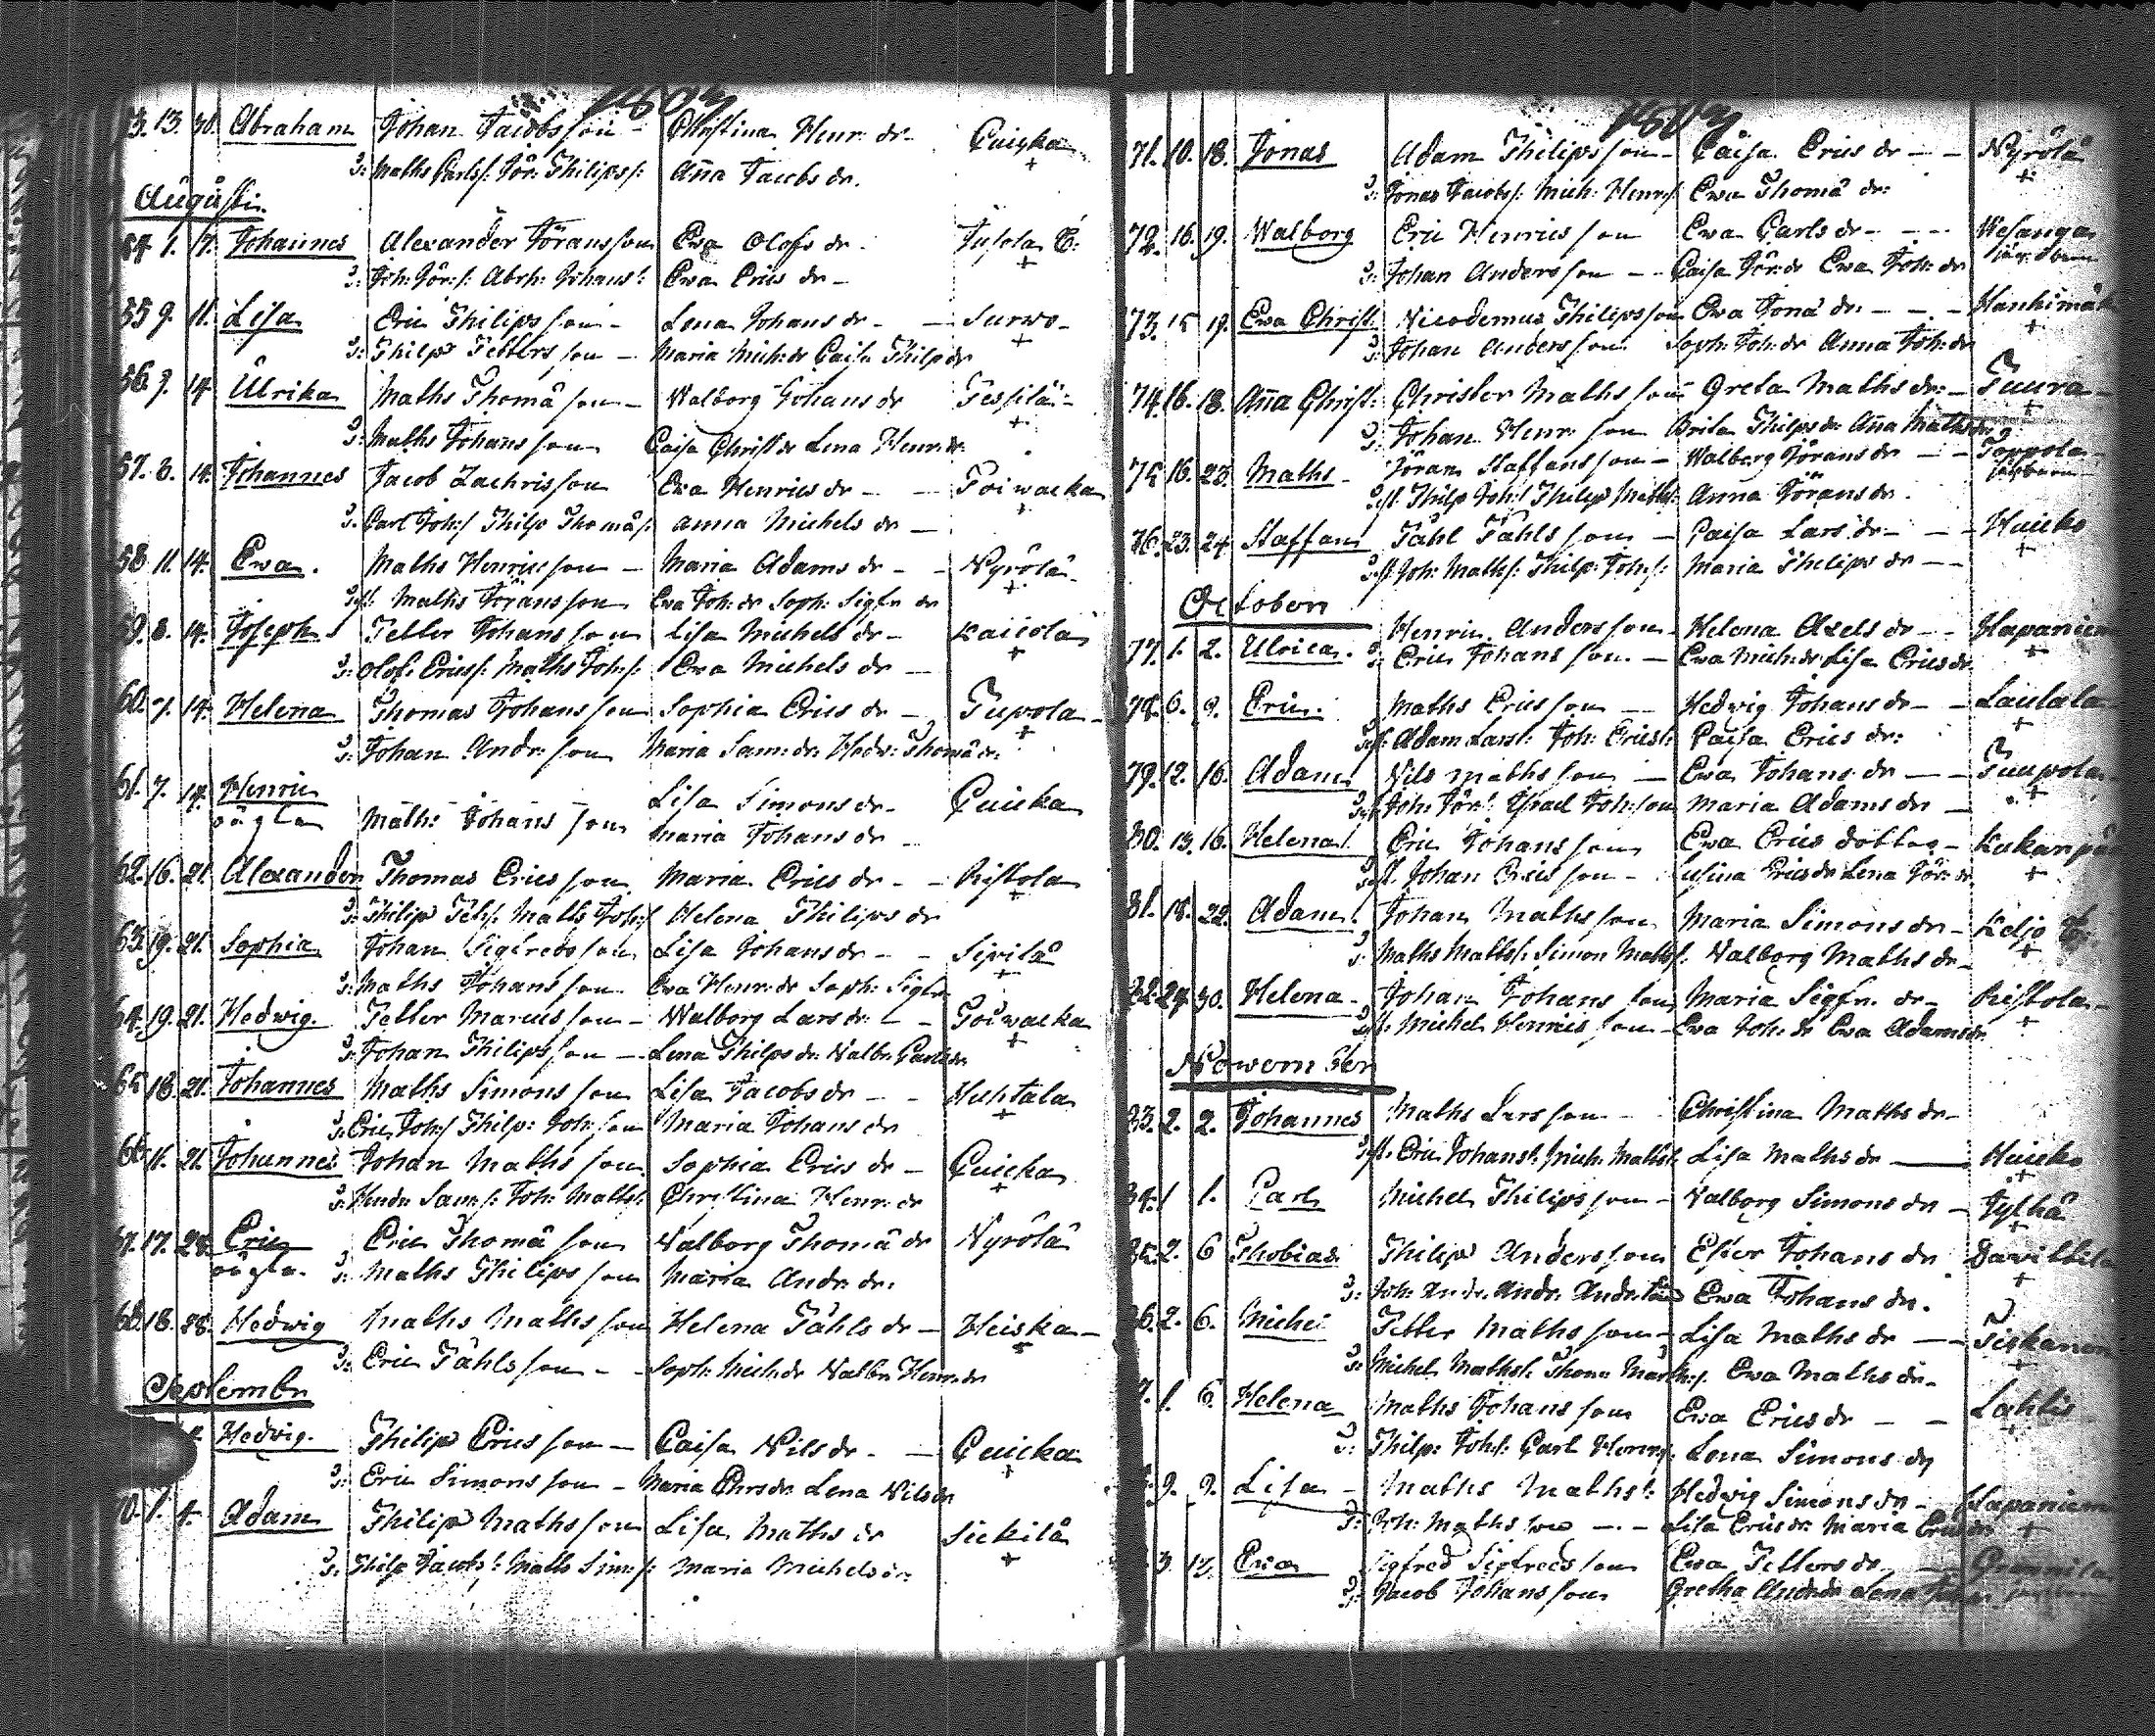 1803
53. 13. 30. Abraham Johan Jacobsson - Christina Henr. dr - Cuicka
Maths Carls/: Jör: Philips/: Anna Jacobs dr.
Augusti.
54 1. 7. Johannes Alexander Göransson Ewa Olofs dr -
Joh: Jör:/: Abrh: Johans/: Ewa Erics dr -
55 9. 11. Lisa Eric Philipsson - Lena Johans dr - - Surwo -
Philip Pettersson - Maria Mich: dr Caisa Philip dr
56. 9. 14 Ulrika Maths Thomäson - Walborg Johans dr
Maths Johansson Caisa Christ dr Lena Henr. dr
57. 8. 14. Johannes Jacob Zachrisson Ewa Henrics dr - - Poiwacka
Carl Joh:/ Philip Thomä/: Anna Michels dr -
58 11. 14. Ewa. Maths Henricsson - Maria Adams dr - - Nyrölä
Maths Göransson Ewa Joh: dr Soph: Sigfr dr
59. 8. 14. Joseph Petter Johansson Lisa Michels dr - Kaicola
Olof: Erics/: Maths Joh:/: Ewa Michels dr -
60. 7. 14. Helena Thomas Johansson Sophia Erics dr - Pupola -
Johan Andr: son Maria Sam: dr. Hedv: Thomä dr.
61. 7. 14. Henric Lisa Simons dr - Cuicka
oägta Maths Johansson Maria Johans dr -
62. 16. 21. Alexander Thomas Ericsson Maria Erics dr - - Ristola
Philip Pet:/: Maths Joh:/ Helena Philips dr
63. 19. 21. Sophia Johan Sigfredsson Lisa Johans dr - - Sipilä
Maths Johansson - Ewa Henr: dr Soph: Sigfr
64. 19. 21. Hedwig. Petter Marcusson - Walborg Lars dr - - Poiwacka
Johan Philipsson - Lena Philps dr. Walbr. Carls dr
65 18. 21. Johannes Maths Simonsson Lisa Jacobs dr - - Huhtala
Eric Joh:/ Philp: Joh: son Maria Johans dr
66. 11. 21. Johannes Johan Mathsson Sophia Erics dr - Cuicka
Henr Sam:/: Joh: Maths/: Christina Henr: dr
67. 17. 28. Eric Eric Thomäson Walborg Thomä dr Nyrölä
oägta. Maths Philipsson Maria Andr: dr.
68. 18. 28. Hedwig Maths Mathsson Helena Påhls dr - Heiska -
Eric Påhlsson - - Soph: Mich: dr Walbr Henr: dr
Septembr
Hedwig. Philip Ericsson - Caisa Nils dr - - Cuicka
Eric Simonsson - Maria Chrs dr. Lena Nils dr
70. 1. 4. Adam Philip Mathsson Lisa Maths dr Sickilä
Philp Jacobs/: Maths Sim:/: Maria Michels dr.
1803
71. 10. 18. Jonas Adam Philipsson - Caisa Erics dr - - Nyrölä
Jonas Jacobs/: Mich: Henr:/ Ewa Thomä dr:
72. 16. 19. Walborg Eric Henricsson Ewa Carls dr - - - Wesanga
Johan Andersson - - Caisa Jör: dr Ewa Joh: dr
73. 15 19. Ewa Christ. Nicodemus Philipsson Ewa Jona dr: - - -
Johan Andersson Soph: Joh: dr Anna Joh: dr
74. 16. 18. Anna Christ: Christer Mathsson Greta Maths dr: - Puura -
Johan Henr. son Brita Philps dr. Anna Maths dr
75 16. 23. Maths - Jöran Staffansson - Walborg Jörans dr - - Toppola -
Philp Joh:/ Philip Maths/: Anna Jörans dr.
76. 23. 24 Staffan Påhl Påhlsson - Caisa Lars dr - - - Huicko
Joh: Maths/: Philp: Joh:/: Maria Philips dr - -
October
77. 1. 2. Ulrica. Henric Andersson - Helena Axels dr - - Hapaniem
Eric Johansson - Ewa Mich: dr Lisa Erics dr
78. 6. 9. Eric. Maths Ericsson - - Hedwig Johans dr - - Laulala
Adam Lars/: Joh: Erics/: Caisa Erics dr:
79. 12. 16. Adam Nils Mathsson - Ewa Johans dr - - Pupola
Joh: Jör/: Israel Joh: son Maria Adams dr -
80. 13. 16. Helena. Eric Johansson Ewa Erics dotter -
Johan Ericsson - Erics dr Lena Jör: dr
81. 18. 22. Adam. Johan Mathsson Maria Simons dr - Keljo
Maths Maths/: Simon Maths/: Walborg Maths dr -
82. 24. 30. Helena - Johan Johansson Maria Sigfr. dr - Ristola -
Michel Henricsson - Ewa Joh: dr Ewa Adams dr.
Nowember
83. 2. 2. Johannes Maths Larsson - Christina Maths dr -
Eric Johans/: Mich: Maths/: Lisa Maths dr - Huicko
84. 1 1. Carl Michel Philipsson - Walborg Simons dr - Jylhä
85. 2. 6 Thobias Philip Andersson Ester Johans dr
Joh: Andr. Andr: Andr: son Ewa Johans dr.
86. 2. 6. Michel Petter Mathsson - Lisa Maths dr - - Piskanen
Michel Maths/: Thom: Marks/: Ewa Maths dr -
1. 6. Helena Maths Johansson Ewa Erics dr - - Lahtis
Philp: Joh:/: Carl Henr:/. Lena Simons dr
9. 9. Lisa - Maths Maths/: Hedwig Simons dr - Hapaniem
Joh: Mathsson - - Lisa Erics dr. Maria Erics dr
3. 12. Ewa Sigfred Sigfredsson Ewa Petters dr - Gunnila
Jacob Johansson Gretha Andr dr Lena